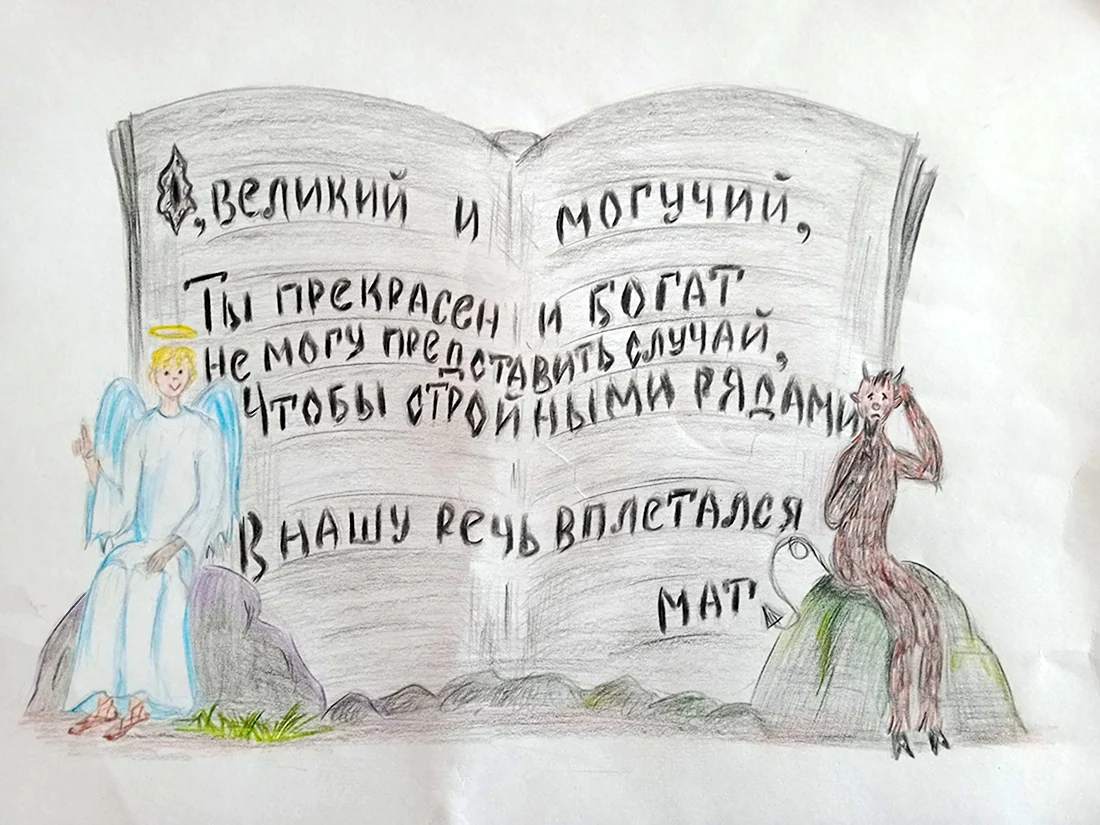 О, великий и могучий,
Ты прекрасен и богат
не могу представить случай,
Чтобы стройными рядами
В нашу речь вплетался
мат.